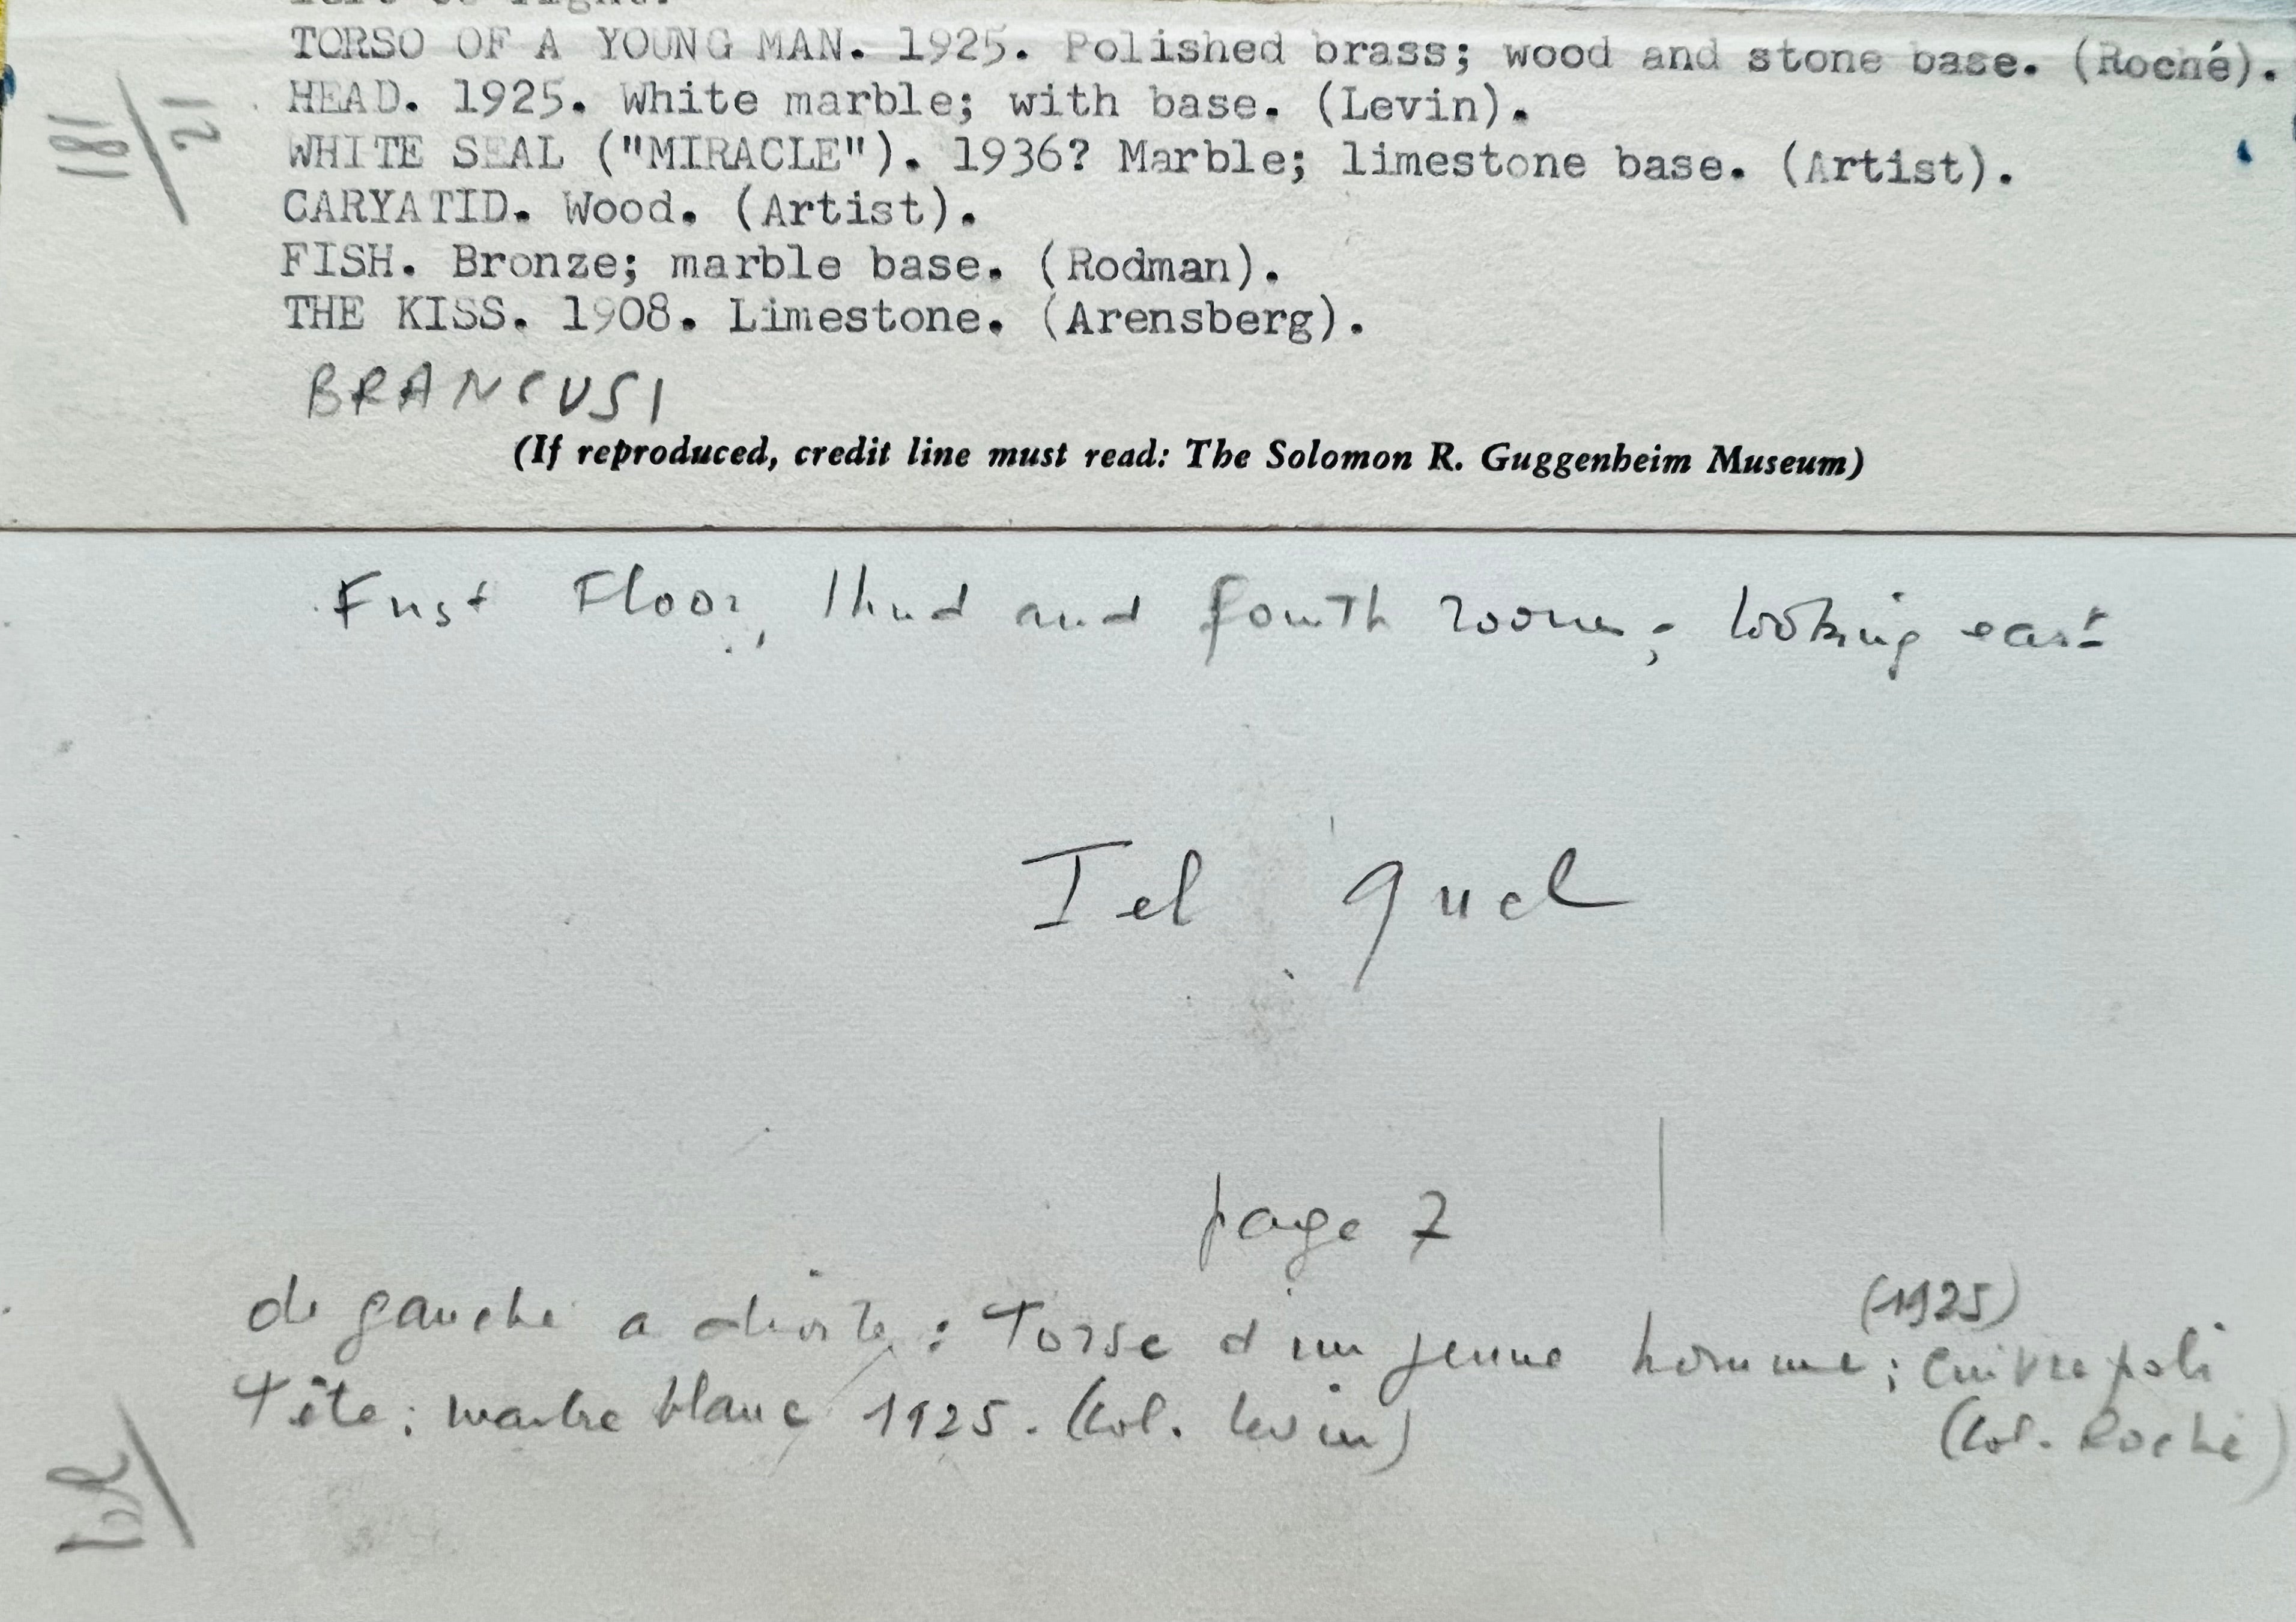 TORSO OF A YOUNG MAN. 1925. Polished brass; wood and stone base. (Roché).
HEAD. 1925. White marble; with base. (Levin).
WHITE SEAL ("MIRACLE"). 1936? Marble; limestone base. (Artist).
CARYATID. Wood. (Artist).
FISH. Bronze; marble base. (Rodman).
THE KISS. 1908. Limestone. (Arensberg).
BRANCUSI
(If reproduced, credit line must read: The Solomon R. Guggenheim Museum)
First Floor, Third and fourth rooms; looking east
Tel quel
page 7
de gauche a droite: Torse d'un jeune homme; (1925) cuivre poli
Tête: marbre blanc 1925. (Col. Levin) (Col. Roché)
181/21